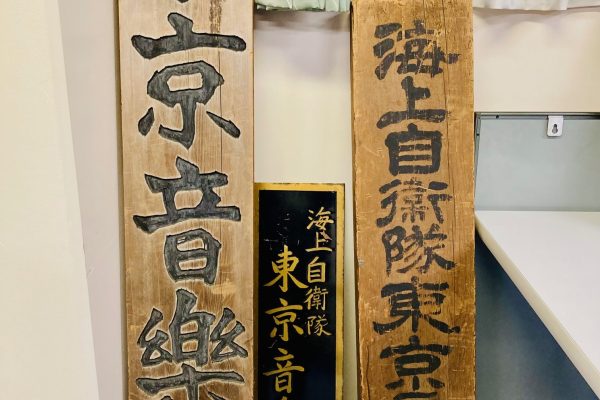 海上自衛隊東京
海上自衛隊
東京音
京音樂